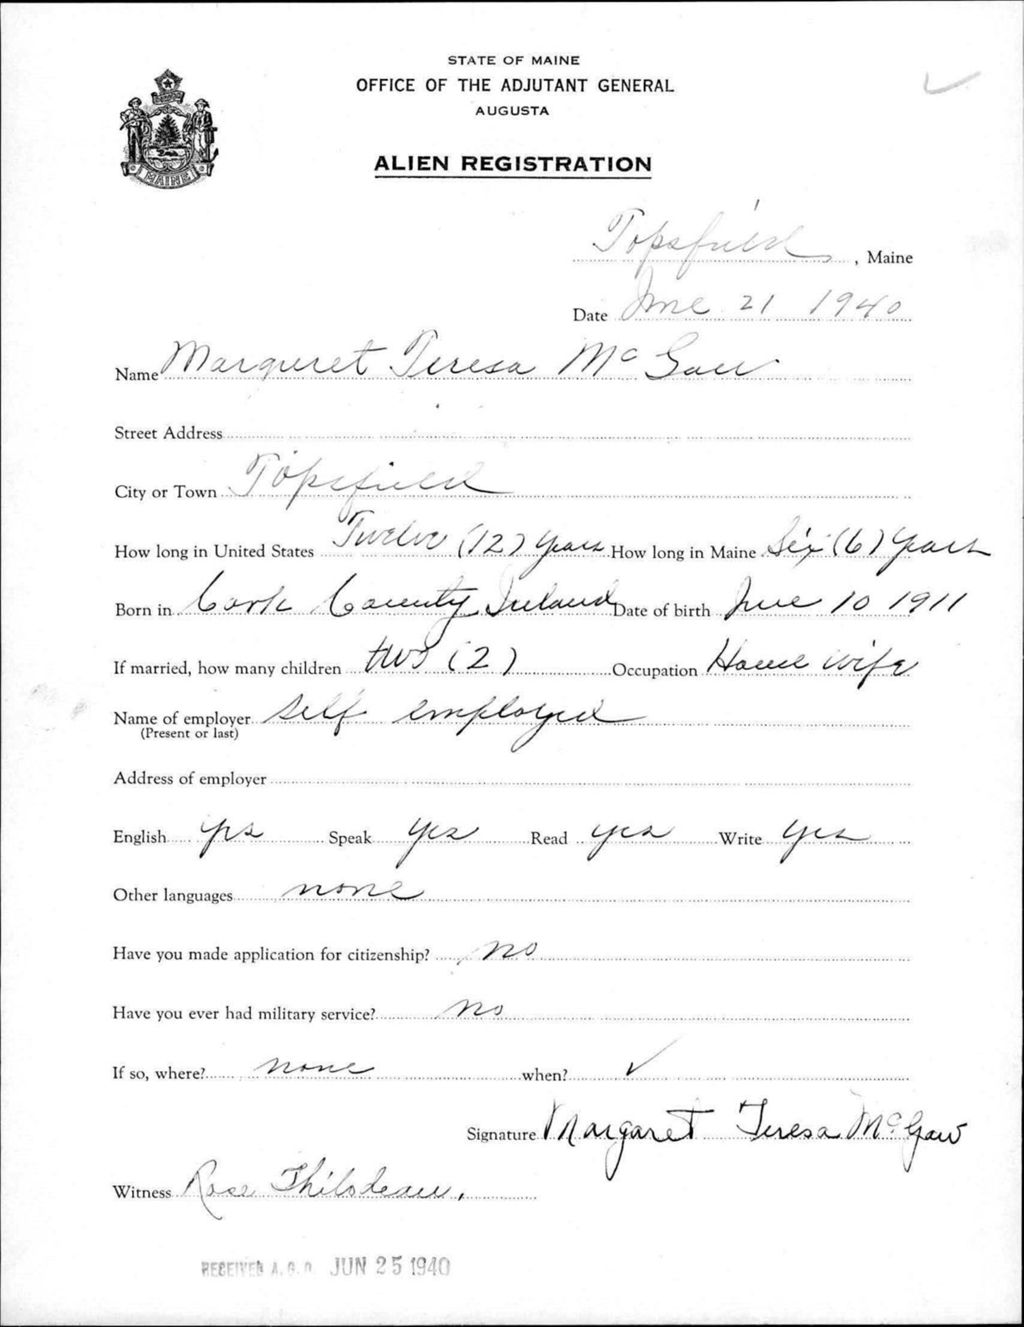 STATE OF MAINE
OFFICE OF THE ADJUTANT GENERAL
AUGUSTA
MAINE
ALIEN REGISTRATION
Topsfield, Maine
Date June 21 1940
Name Margueret Teresa Mc Gaw
Street Address
City or Town Topsfield
How long in United States Twelve (12) years How long in Maine Six (6) years
Born in Cork County, Ireland Date of birth June 10 1911
If married, how many children two (2) Occupation House wife
Name of employer self employed
(Present or last)
Address of employer
English yes Speak yes Read yes Write yes
Other languages none
Have you made application for citizenship? no
Have you ever had military service? no
If so, where? none when? ✓
Signature Margaret Teresa McGaw
Witness Rose Thilodeau.
RECEIVED A.G.O. JUN 25 1940